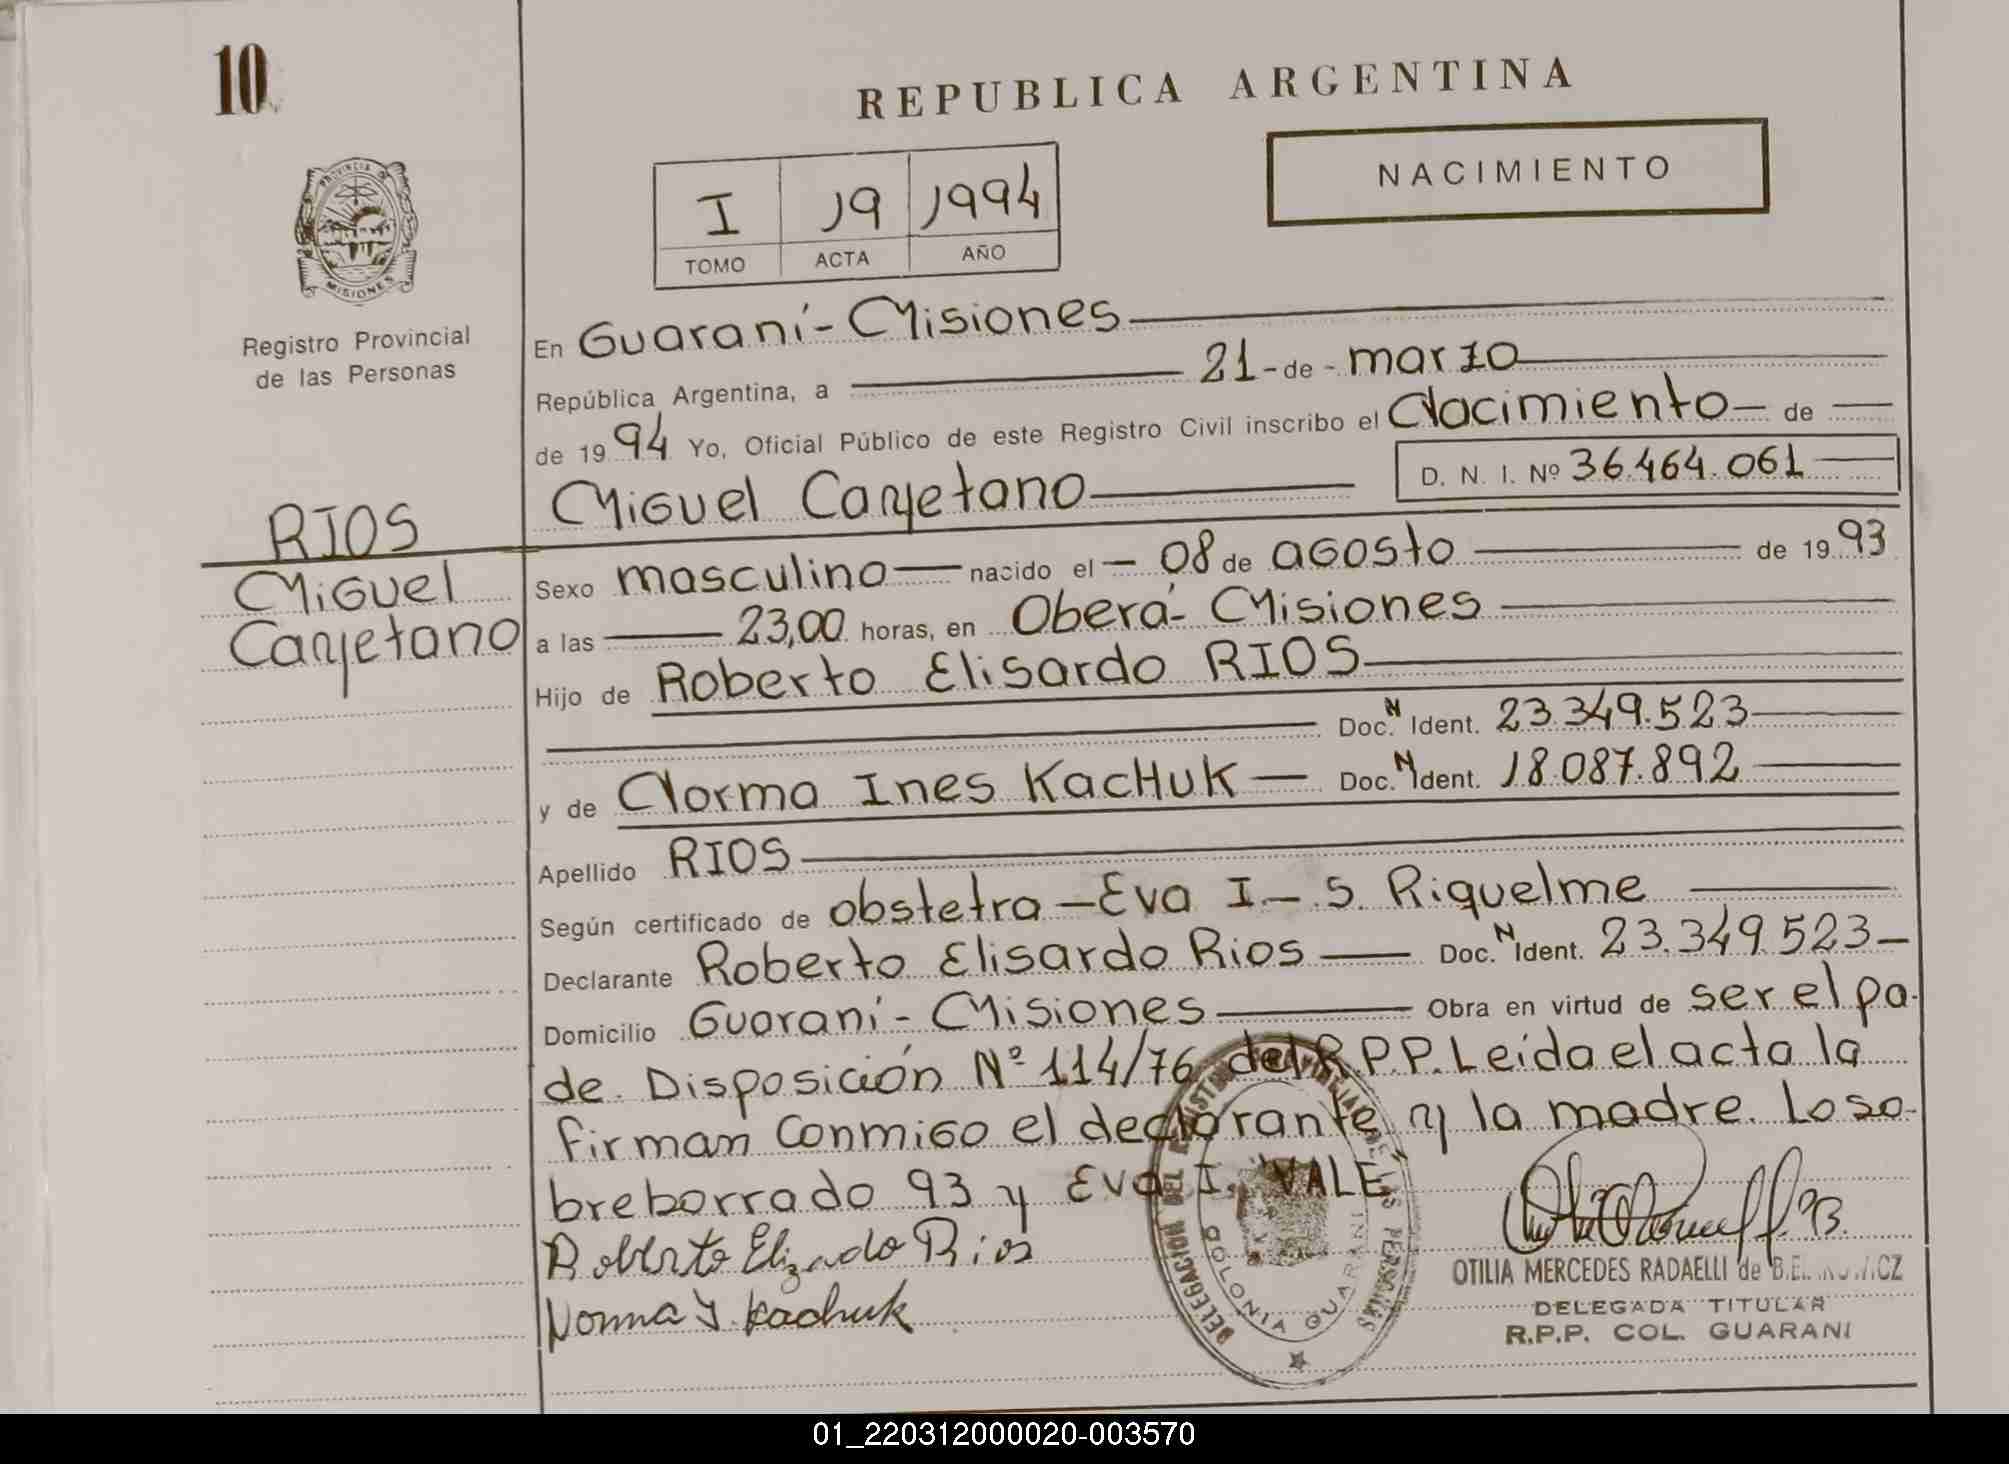 10
REPUBLICA ARGENTINA
NACIMIENTO
I 19 1994
TOMO ACTA AÑO
PROVINCIA DE
MISIONES
Registro Provincial
de las Personas
RIOS
Miguel
Cayetano
En Guaraní - Misiones
República Argentina, a 21 - de - marzo
de 1994 Yo, Oficial Público de este Registro Civil inscribo el Nacimiento - de
Miguel Cayetano D. N. I. Nº 36.464.061
Sexo masculino nacido el - 08 de agosto de 1993
a las 23,00 horas, en Oberá - Misiones
Hijo de Roberto Elisardo RIOS
Doc. N Ident. 23.349.523
y de Norma Ines KacHuk - Doc. N Ident. 18.087.892
Apellido RIOS
Según certificado de obstetra - Eva I. - S. Riquelme
Declarante Roberto Elisardo Rios Doc. N Ident. 23.349.523 -
Domicilio Guaraní - Misiones Obra en virtud de ser el pa-
de. Disposición Nº 114/76 del R.P.P. Leída el acta la
firman conmigo el declarante y la madre. Lo so-
breborrado 93 y Eva I. VALE
Roberto Elizardo Rios
Norma I. Kachuk
DELEGACION DEL REGISTRO PROVINCIAL DE LAS PERSONAS
COLONIA GUARANI
OTILIA MERCEDES RADAELLI de
DELEGADA TITULAR
R.P.P. COL. GUARANI
01_220312000020-003570